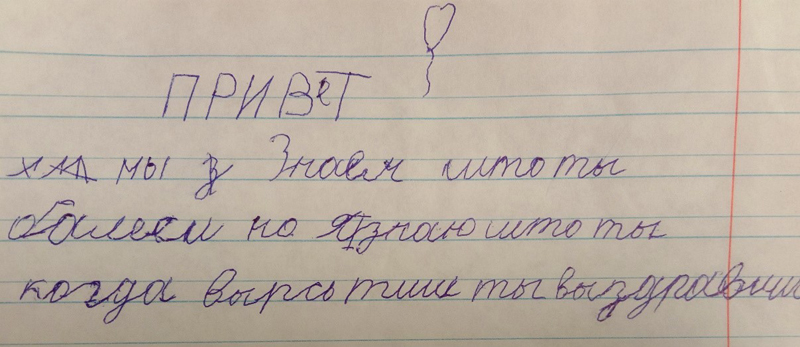 ПРИВеТ
мы з Знаем што ты
балееш но я знаю што ты
когда вырсотиш ты выздравиш